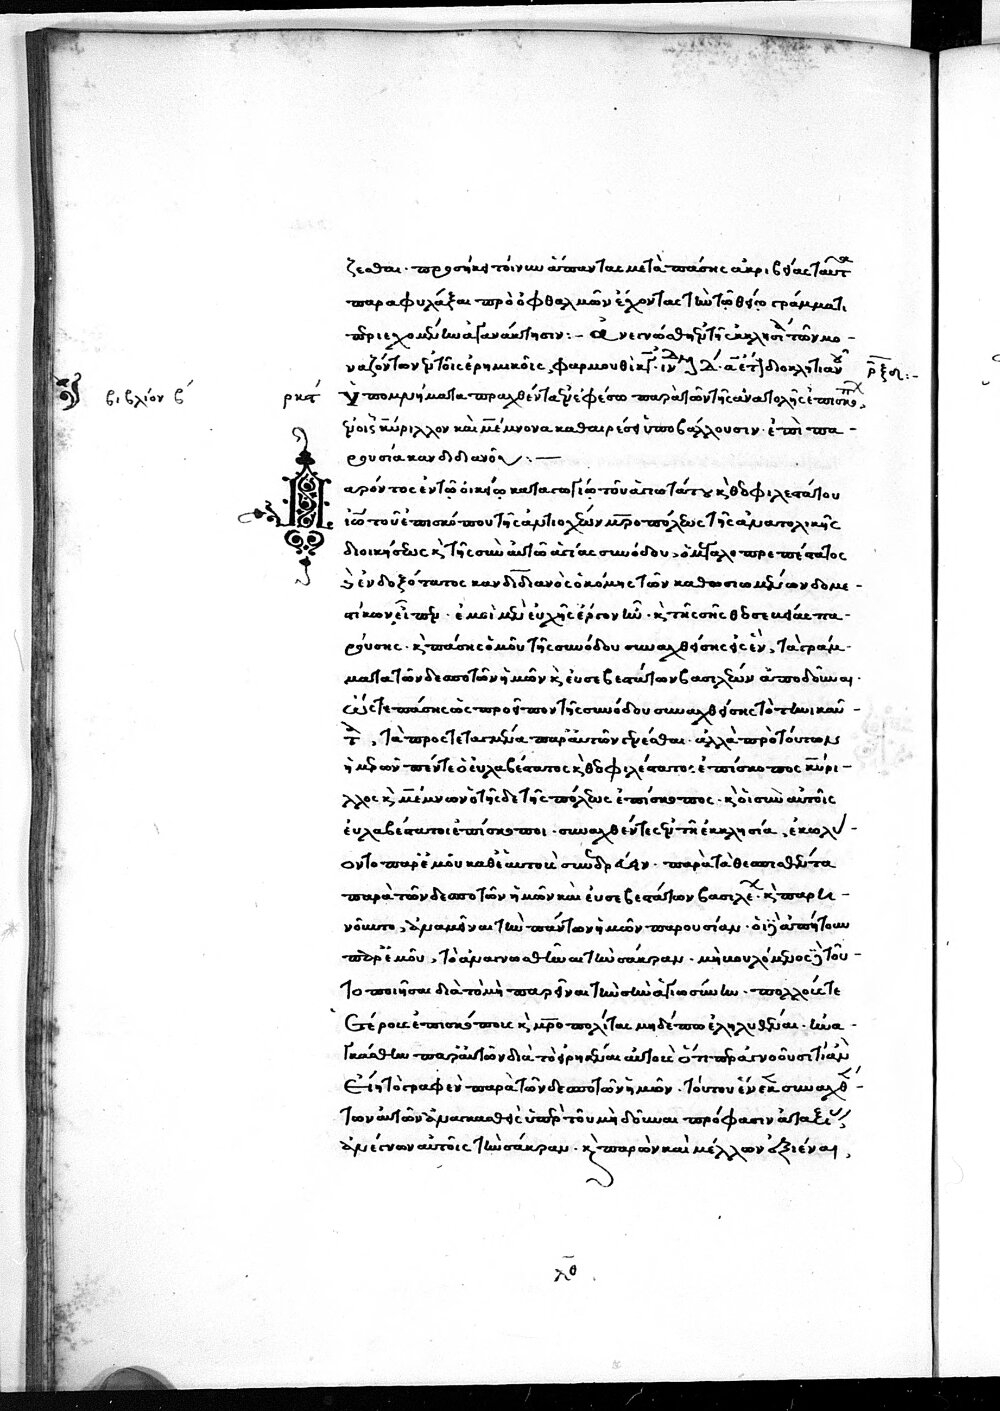 ζεσθαι· προσήκει τοίνυν ἅπαντας μετὰ πάσης ἀκριβείας ταῦτα
παραφυλάξαι πρὸ ὀφθαλμῶν ἔχοντας τὴν τῷ θείῳ γράμματι
περιεχομένην ἀγανάκτησιν:– Ἀνεγνώσθη ἐν τῆς ἐκκλησί τῶν μο-
ναζόντων ἐν τοῖς ἐρημικοῖς, φαρμουθὶ διοκλητιαν
βιβλίον β
ὑπομνήματα πραχθέντα ἐν ἐφέσῳ παρὰ τῶν τῆς ἀνατολῆς ἐπισκο,
ἐν οἷς κύριλλον καὶ μέμνονα καθαιρέσει ὑποβάλλουσιν· ἐπὶ πα-
ρουσία κανδιδιανοῦ:—
Παρόντος ἐν τῷ οἰκείῳ καταγωγίῳ τοῦ ἁγιωτάτου κ θεοφιλεστάτου
ἰω τοῦ ἐπισκόπου τῆς ἀντιοχέων μροπόλεως τῆς ἀνατολικῆς
διοικήσεως κ τῆς σὺν αὐτῷ ἁγίας συνόδου, ὁ μεγαλοπρεπέστατος
κ ἐνδοξότατος κανδιδιανὸς ὁ κόμης τῶν καθωσιωμένων δομε-
στίκων, εἶπεν· ἐμοὶ μὲν εὐχῆς ἔργον ἦν· κ τῆς σῆς θεοσεβείας πα-
ρούσης· κ πάσης ὁμοῦ τῆς συνόδου συναχθείσης εἰς ἓν, τὰ γράμ-
ματα τῶν δεσποτῶν ἡμῶν κ εὐσεβεστάτων βασιλέων ἀποδοῦναι·
ὥστε πάσης ὡς προεῖπον τῆς συνόδου συναχθείσης τὸ τηνικαῦ-
τα, τὰ προστεταγμένα παρ' αὐτῶν γενέσθαι· ἀλλὰ πρὸ τούτων
ἡμερῶν πέντε ὁ εὐλαβέστατος κ θεοφιλέστατος ἐπίσκοπος κύρι-
λλος κ μέμνων ὁ τῆς δε τῆς πόλεως ἐπίσκοπος· κ οἱ σὺν αὐτοῖς
εὐλαβέστατοι ἐπίσκοποι· συναχθέντες ἐν τῇ ἐκκλησία, ἐκωλύ-
οντο παρ' ἐμοῦ καθ' ἑαυτοὺς συνεδρεύειν· παρὰ τὰ θεσπισθέντα
παρὰ τῶν δεσποτῶν ἡμῶν καὶ εὐσεβεστάτων βασιλέ· κ παρῃ-
νοῦντο, ἀναμεῖναι τὴν πάντων ἡμῶν παρουσίαν· οἱ δὲ ἀπῄτουν
παρ' ἐμοῦ, τὸ ἀναγνωσθῆναι τὴν σάκραν· μὴ βουλόμενος δὲ τοῦ-
το ποιῆσαι διὰ τὸ μὴ παρεῖναι τὴν σὴν ἁγιωσύνην· πολλούς τε
ἑτέρους ἐπισκόπους κ μροπολίτας μηδέπω ἐληλυθέναι· ἠνα-
γκάσθην παρ' αὐτῶν διὰ τὸ εἰρηκέναι αὐτοὺς ὅτιπερ ἀγνοοῦσι τί ἂν
εἴη τὸ γραφὲν παρὰ τῶν δεσποτῶν ἡμῶν· τούτου ἕνεκα συναχθέν-
των αὐτῶν ἀναγκασθεὶς ὑπὲρ τοῦ μὴ δοῦναι πρόφασιν ἀταξίας
ἀνέγνων αὐτοῖς τὴν σάκραν· κ παρὼν καὶ μέλλων ἐξιέναι,
λθ